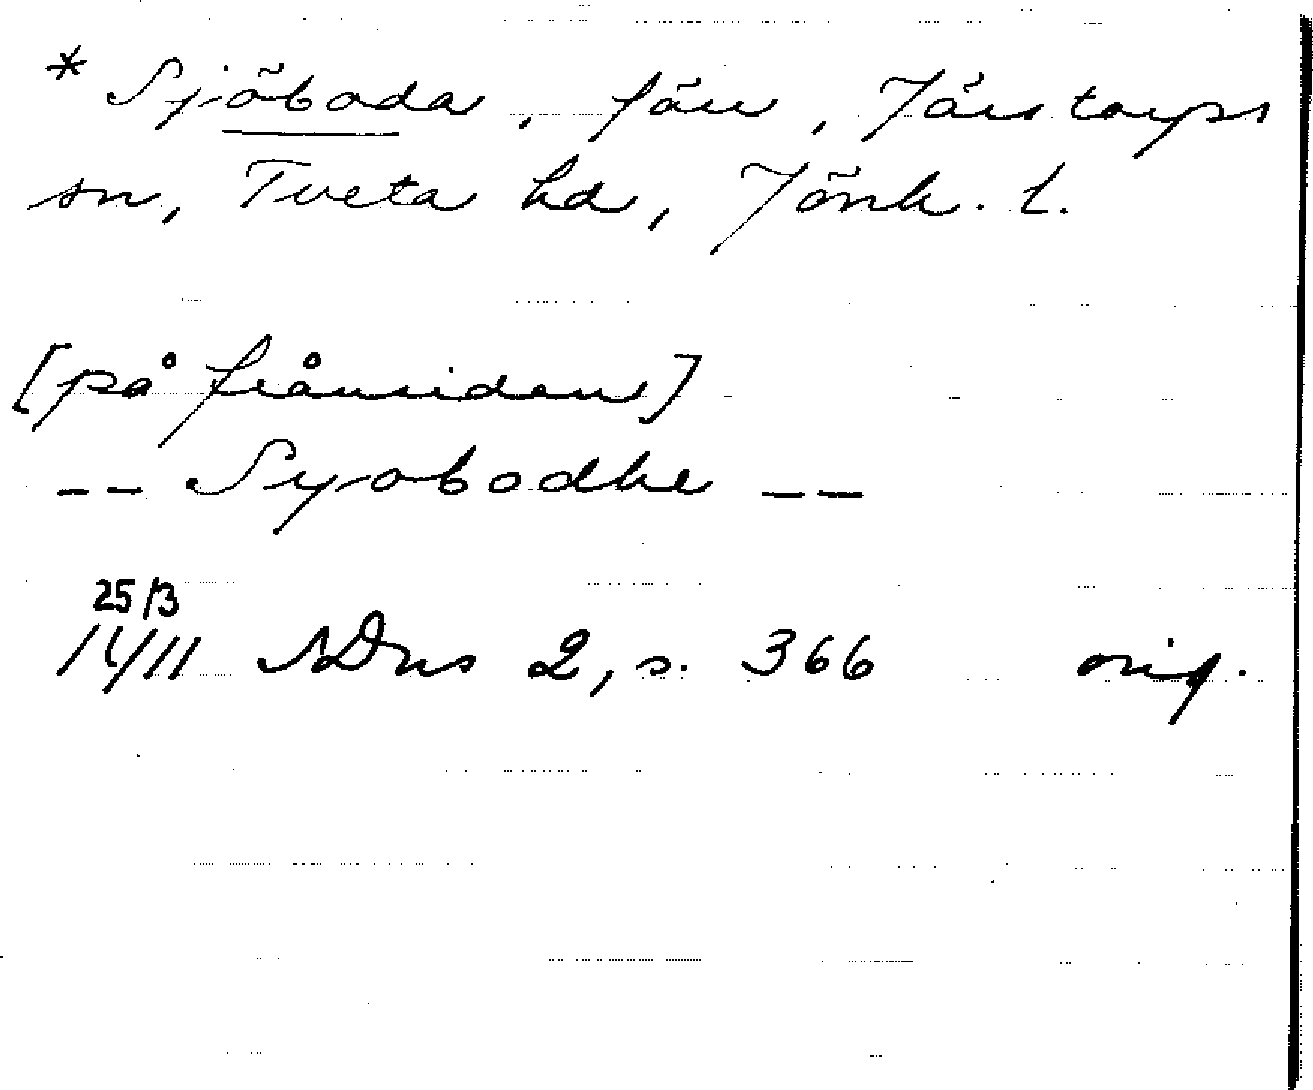 * Sjöboda, förs, Järstorps
sn, Tveta hd, Jönk. l.
[på frånsidan]
-- Syobodhe --
25/3
1411 SDns 2, s. 366 orig.